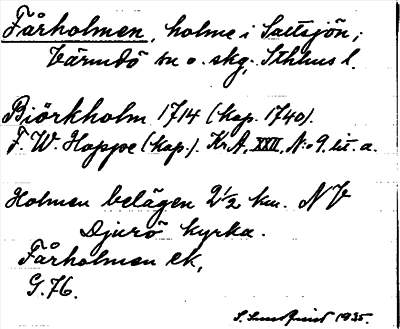 Fårholmen, holme i Saltsjön,
Värmdö sn o. skg, Sthlms l.
Björkholm 1714 (kop. 1740).
F. W. Hoppe (kop.). Kr. A, XXII, N:o 9. lit. a.
Holmen belägen 2 1/2 km. NV
Djurö kyrka.
Fårholmen ek,
G. 76.
S. 1935.